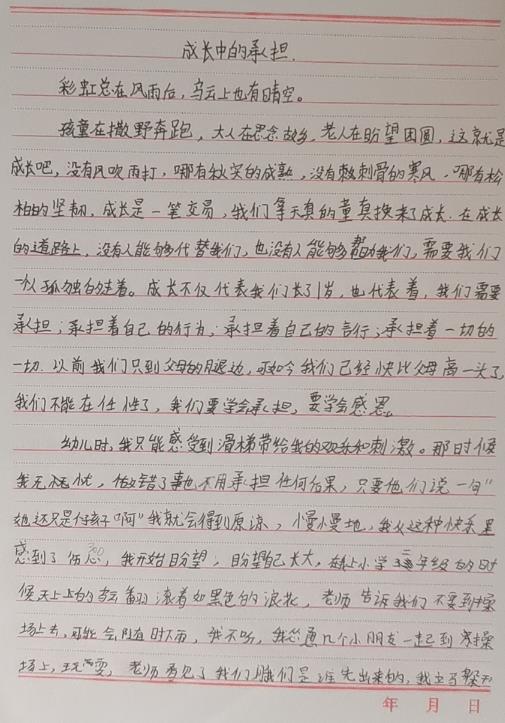 成长中的承担.
彩虹总在风雨后，乌云上也有晴空。
孩童在撒野奔跑，大人在思念故乡，老人在盼望团圆，这就是
成长吧，没有风吹雨打，哪有秋实的成熟，没有刺骨的寒风，哪有松
柏的坚韧，成长是一笔交易，我们拿天真的童真换来了成长.在成长
的道路上，没有人能够代替我们，也没有人能够帮助我们，需要我们
一个人孤独的走着。成长不仅代表我们长了1岁，也代表着，我们需要
承担；承担着自己的行为；承担着自己的言行；承担着一切的
一切.以前我们只到父母的腿边，可如今我们已经快比父母高一头了，
我们不能在任性了，我们要学会承担，要学会感恩。
幼儿时，我只能感受到滑梯带给我的欢乐和刺激。那时候
我无忧，做错了事也不用承担任何后果，只要他们说一句“
她还只是个孩子啊”我就会得到原谅，慢慢地，我从这种快乐里
感到了，我开始盼望，盼望自己长大，在上小学三年级的时
候天上的乌云翻滚着如黑色的浪花，老师告诉我们不要到操
场上去，可能会随时下雨，我不听，我几个小朋友一起到操
场上玩耍，老师看见了我们问我们是谁先出来的，我立马
年 月 日